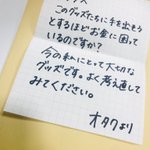 このグッズたちに手を出もう
とするほどお金に困って
いるのですか?
今の私にとって大切な
グッズです。よく考え直して
みてください。
オタクより